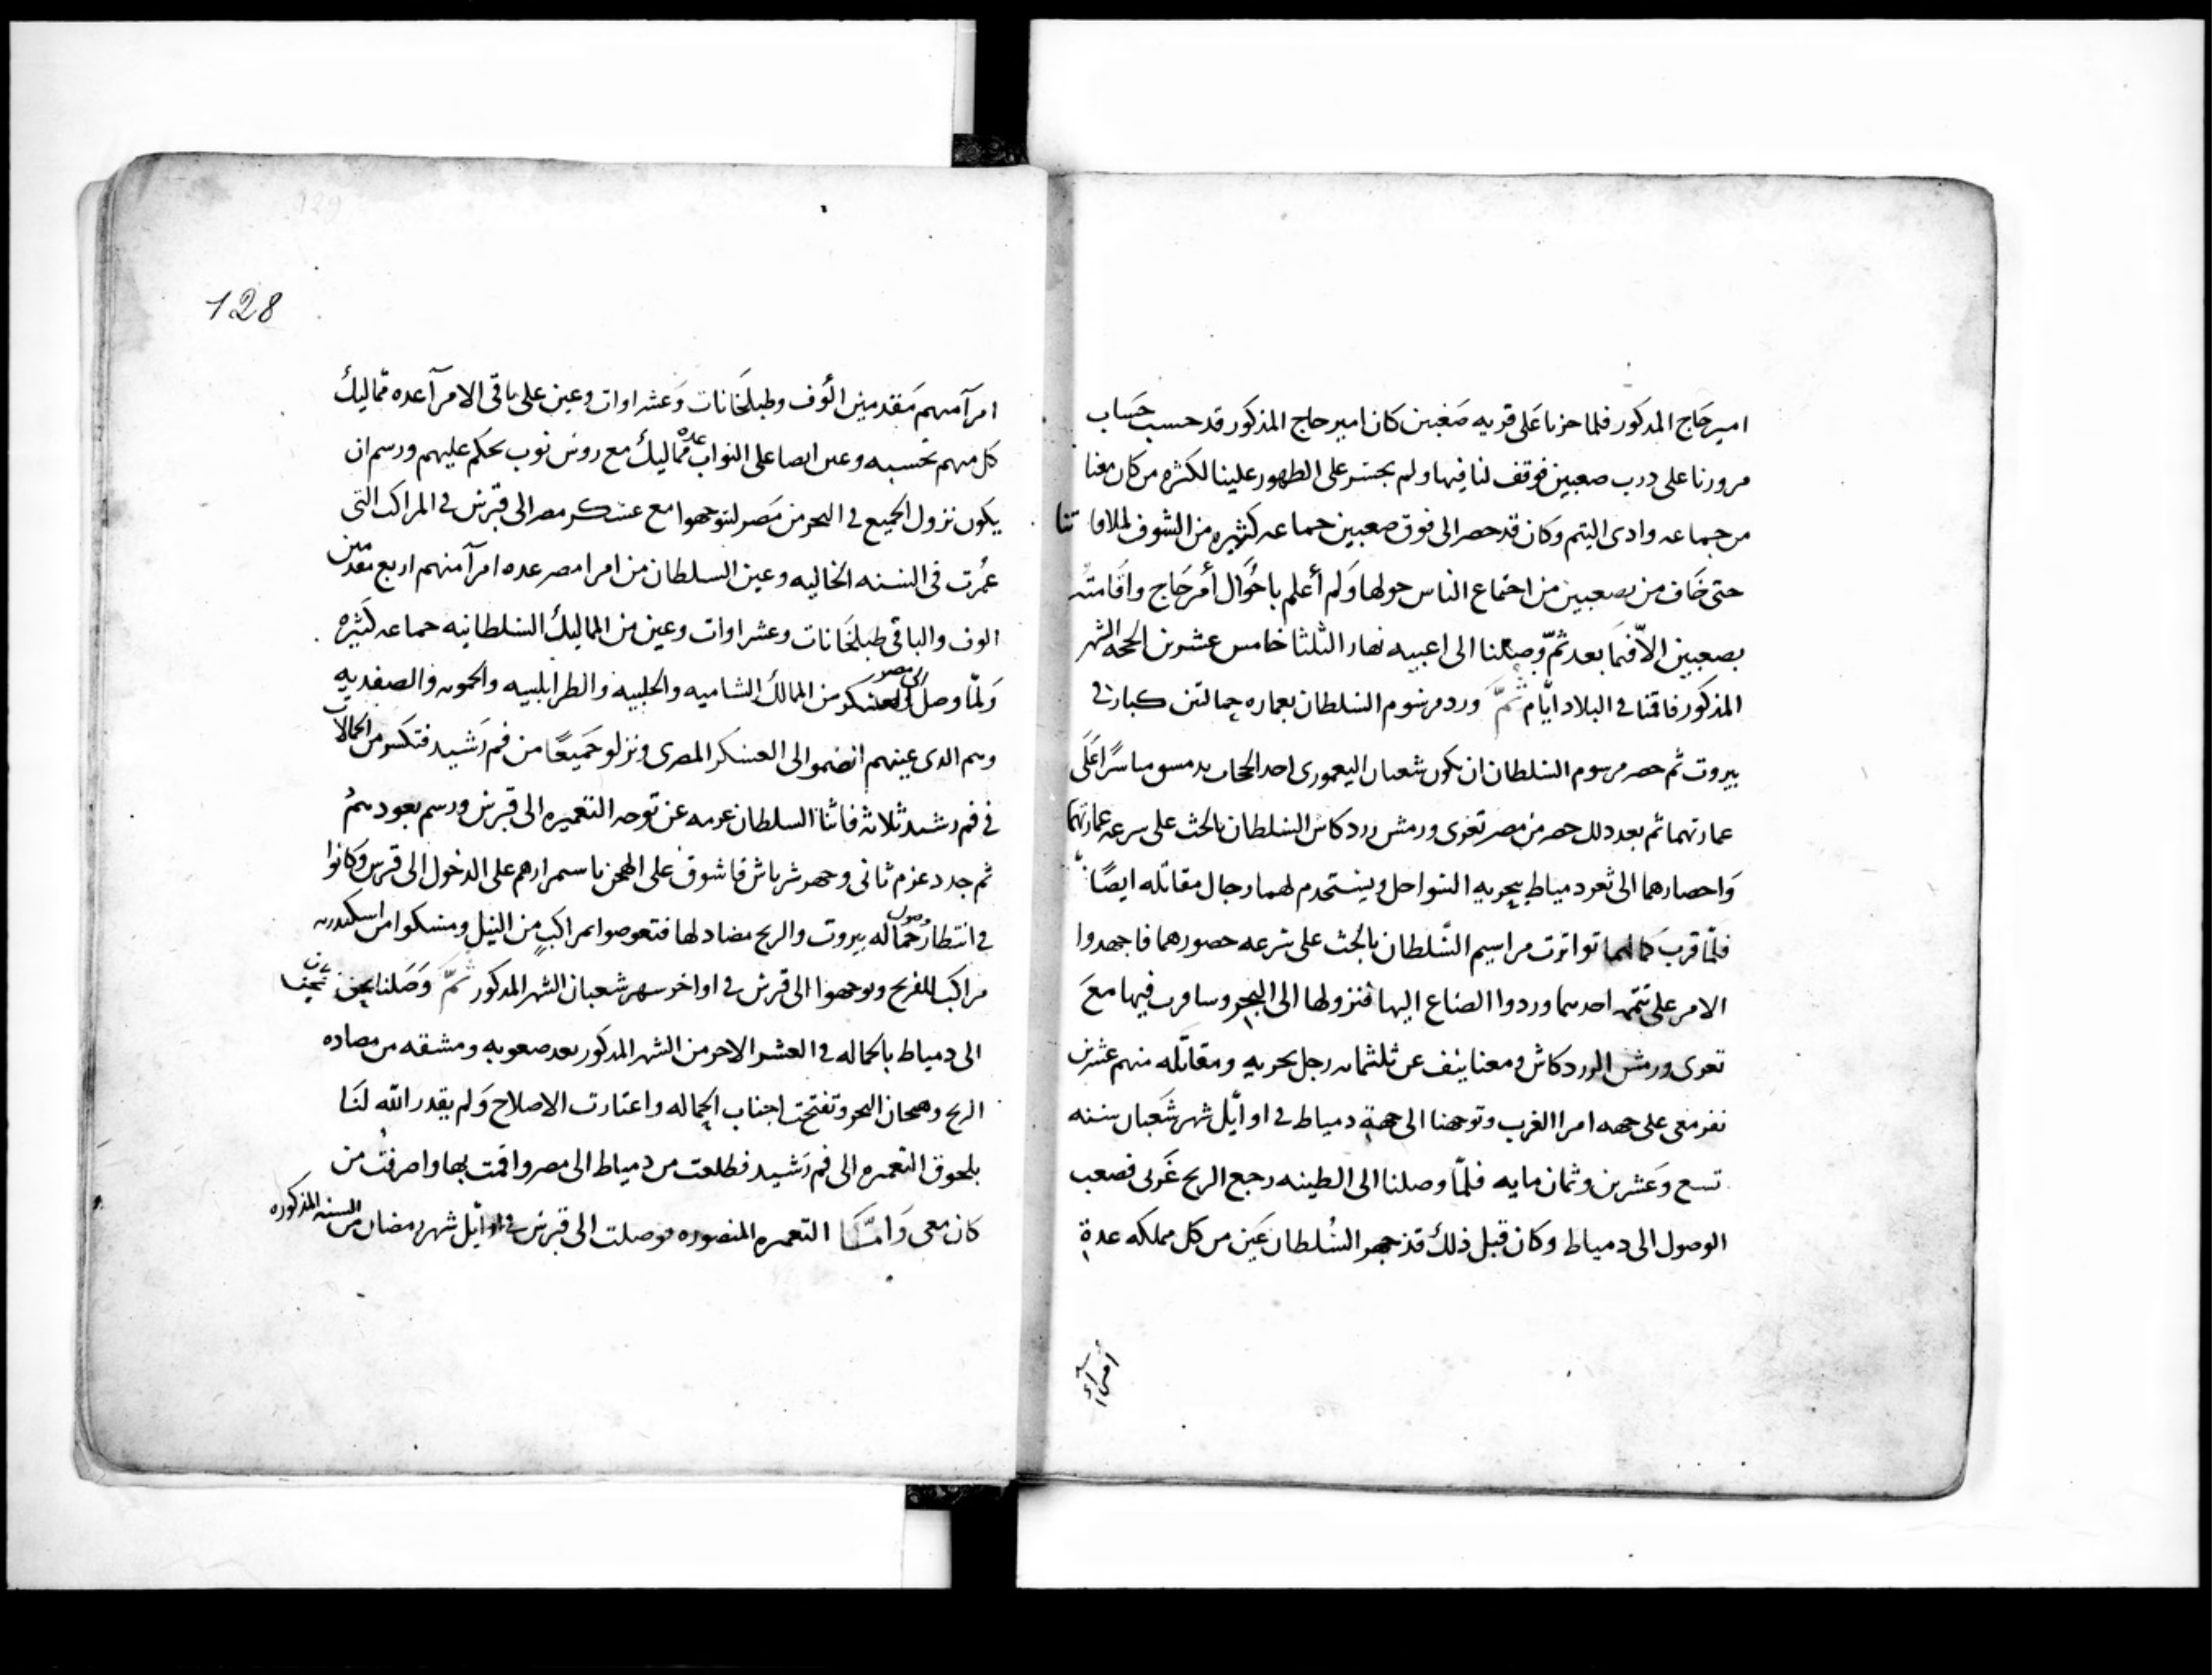 امير حاج المذكور فلما جزنا على قريه صغبين كان امير حاج المذكور قد حسب حساب
مرورنا على درب صغبين فوقف لنا فيها ولم يجسر على الظهور علينا لكثره من كان معنا
من جماعه وادى التيم وكان قد حضر الى فوق صغبين جماعه كثيره من الشوف لملاقاتنا
حتى خاف من بصغبين من اجتماع الناس حولها ولم أعلم باحوال أمر حاج واقامته
بصغبين الا فيما بعد ثم وصلنا الى اعبيه نهار الثلثا خامس عشرين الحجه الشهر
المذكور فاقمنا في البلاد ايام ثم ورد مرسوم السلطان بعماره حمالتين كبار في
بيروت ثم حضر مرسوم السلطان ان يكون شعبان اليعمورى احد الحجاب بدمشق مباشرًا على
عمارتهما ثم بعد ذلك حضر من مصر تغرى ورمش زردكاش السلطان بالحث على سرعه عمارتهما
واحضارهما الى ثغر دمياط ببحريه السواحل ويستخدم لهما رجال مقاتله ايضًا
فلما قرب كمالهما تواترت مراسيم السلطان بالحث على سرعه حضورهما فاجهدوا
الامر على تتمه احدهما وردوا الصناع اليها فنزولها الى البحر وسافرت فيها مع
تغرى ورمش الزردكاش ومعنا ينف عن ثلثمايه رجل بحريه ومقاتله منهم عشرين
نفر معى على جهه امرا الغرب وتوجهنا الى جهة دمياط في اوائل شهر شعبان سنه
تسع وعشرين وثمان مايه فلما وصلنا الى الطينه رجع الريح غربى فصعب
الوصول الى دمياط وكان قبل ذلك قد جهز السلطان عين من كل مملكه عدة
أمراء
128
امرآ منهم مقدمين الوف وطبلخانات وعشراوات وعين على باقى الامرآ عده مماليك
كل منهم بحسبه وعين ايضا على النواب عدة مماليك مع روس نوب يحكم عليهم ورسم ان
يكون نزول الجميع في البحر من مصر ليتوجهوا مع عسكر مصر الى قبرس في المراكب التى
عمرت فى السنه الخاليه وعين السلطان من امرا مصر عده امرآ منهم اربع مقدمين
الوف والباقى طبلخانات وعشراوات وعين من المماليك السلطانيه جماعه كثيره
ولما وصل الى مصر العسكر من الممالك الشاميه والحلبيه والطرابلسيه والحمويه والصفديه
وهم الدى عينهم انضموا الى العسكر المصرى ونزلو جميعًا من فم رشيد فتكسر من الحمالات
في فم رشيد ثلاثه فانثنا السلطان عزمه عن توجه التعميره الى قبرس ورسم بعودهم
ثم جدد عزم ثانى وجهز شرباش قاشوق على الهجن باستمرارهم على الدخول الى قبرس وكانوا
في انتظار وصول حماله بيروت والريح مضاد لها فتعوضوا مراكب من النيل ومسكوا من اسكندريه
مراكب للفرنج وتوجهوا الى قبرس في اواخر شهر شعبان الشهر المذكور ثم وصلنا نحن
الى دمياط بالحماله في العشر الاخر من الشهر المذكور بعد صعوبه ومشقه من مضاده
الريح وهيجان البحر وتفتحت اجناب الحماله واعتازت الاصلاح ولم يقدر الله لنا
بلحوق التعميره الى فم رشيد فطلعت من دمياط الى مصر واقمت بها واصرفت من
كان معى وامَّا التعميره المنصوره فوصلت الى قبرس في اوائل شهر رمضان من السنه المذكوره